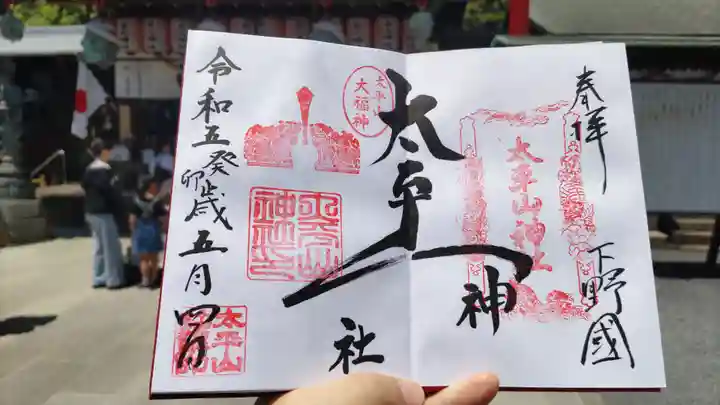 奉拝
下野國
太平山神社
太平山
神社
太平山
大福神
太平山神社印
令和五癸卯歳五月四日
太平山